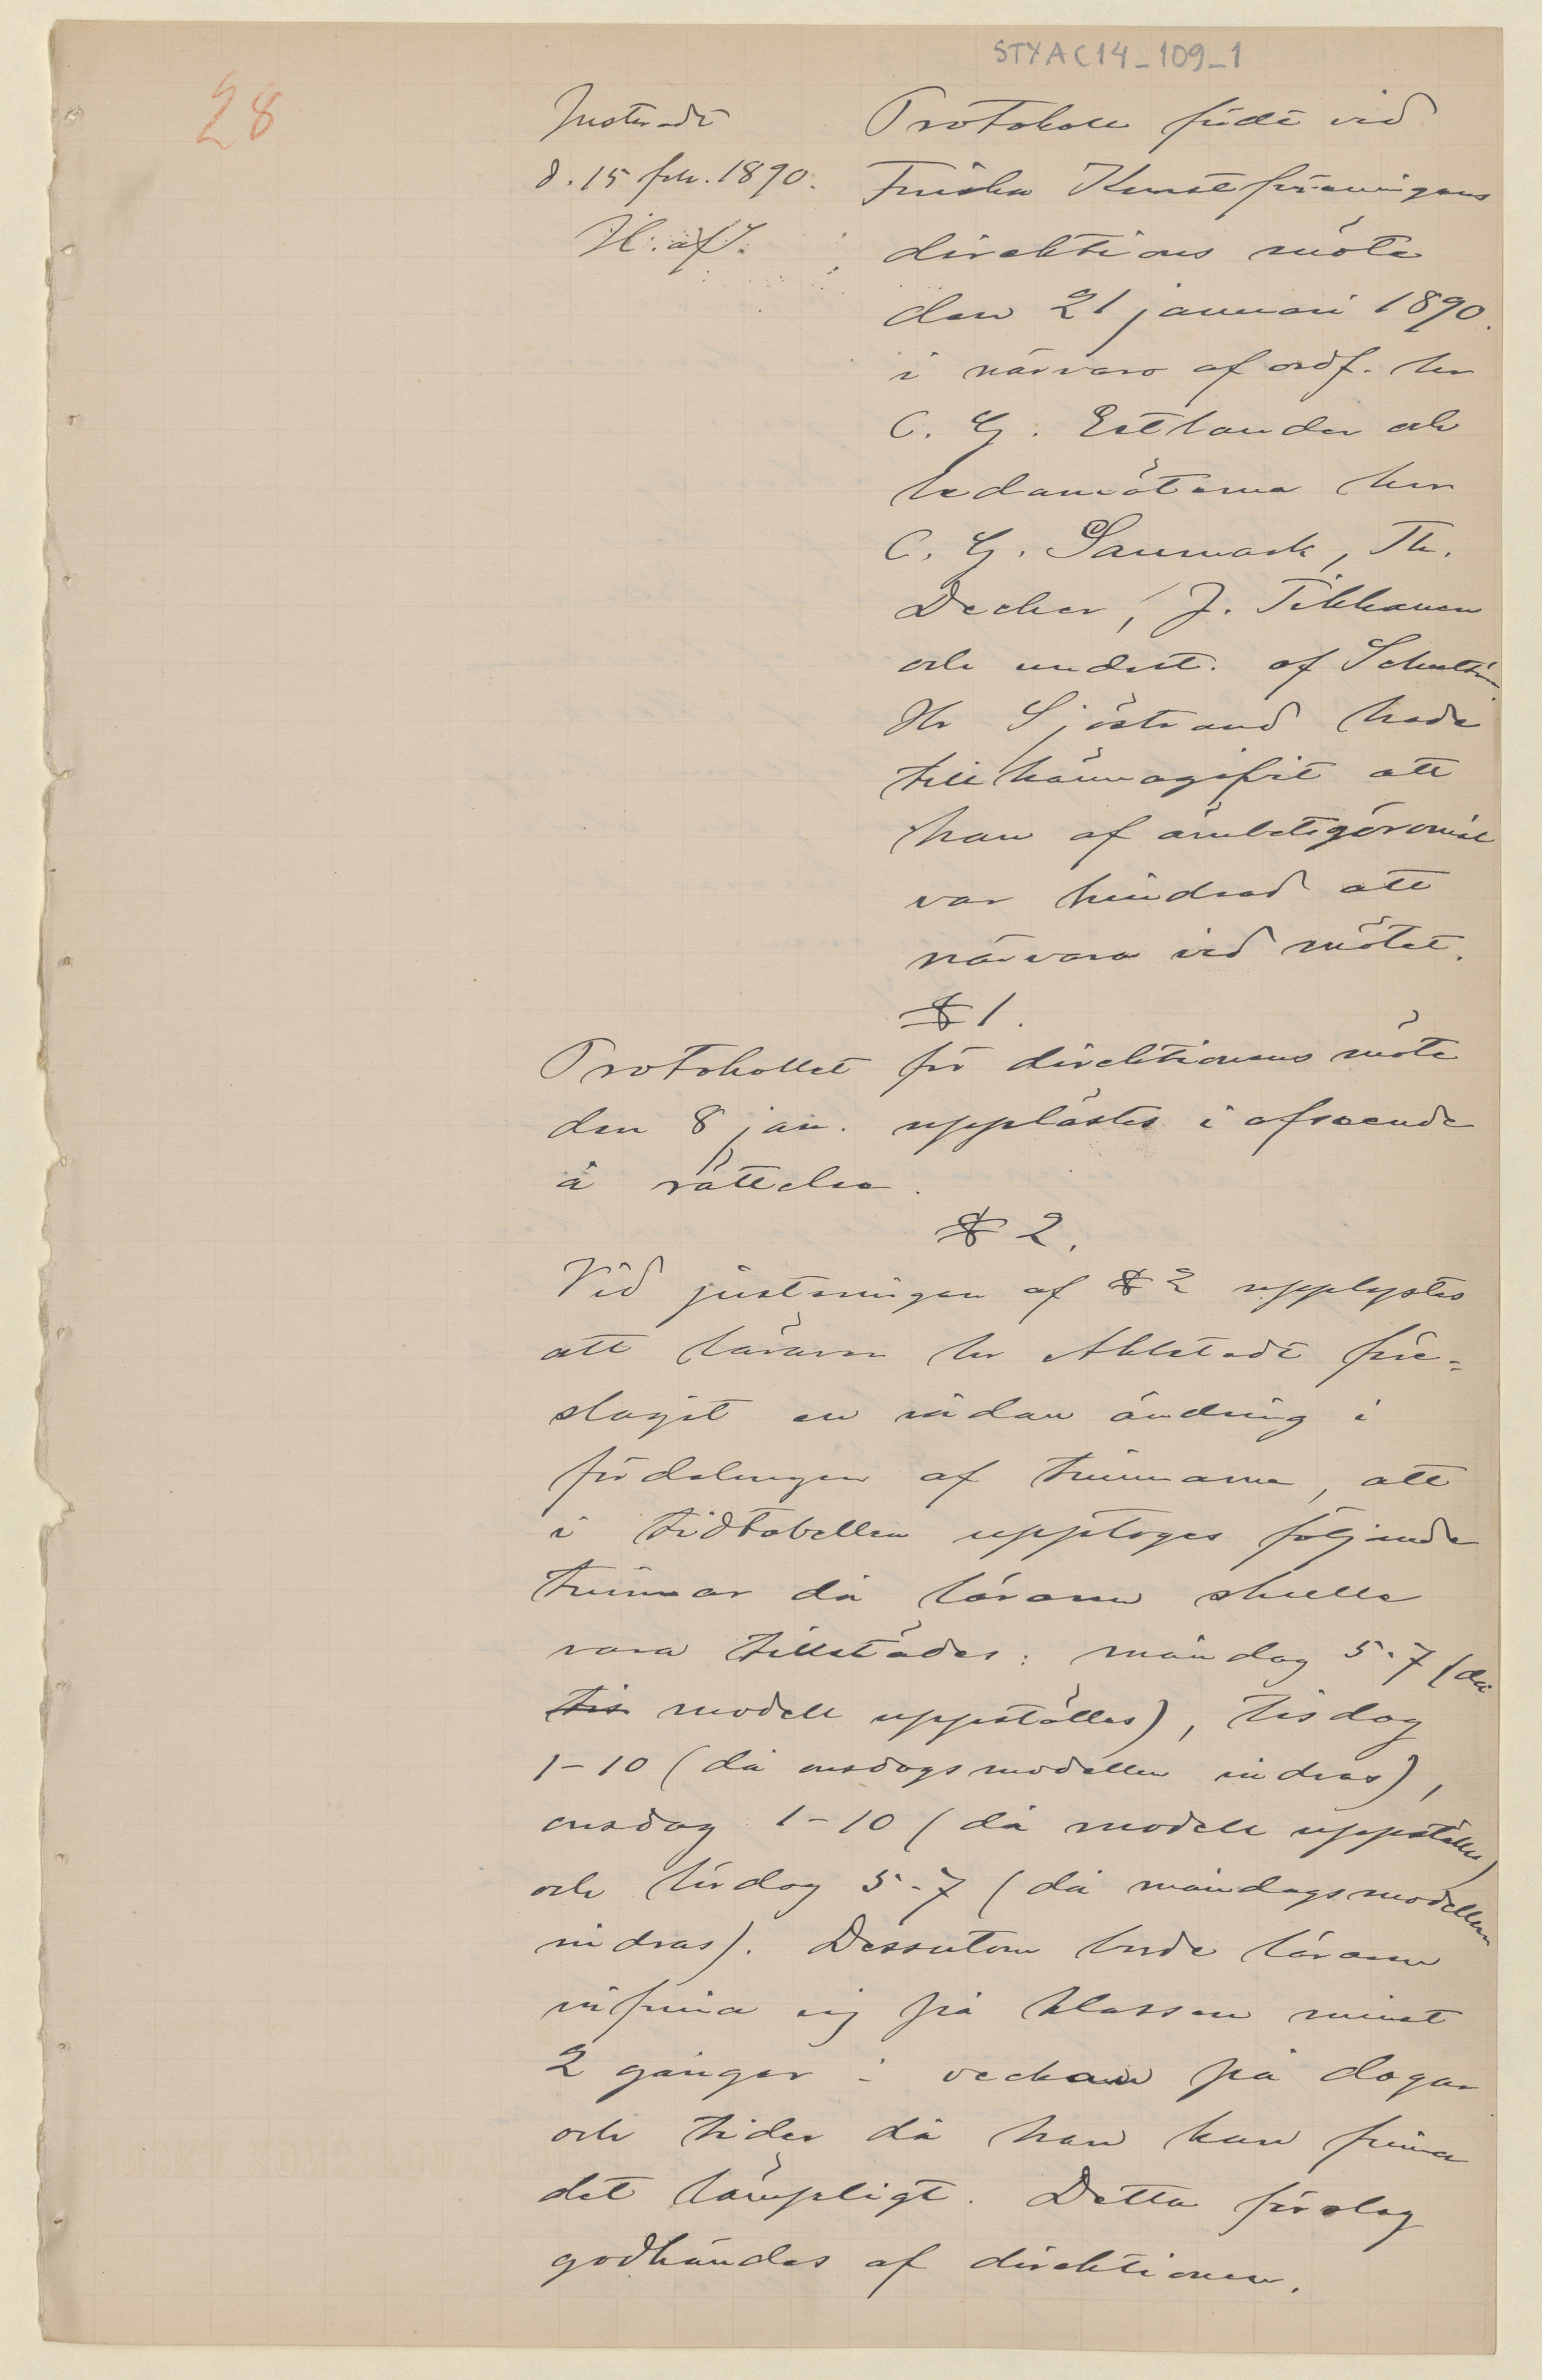 STYAC14_109_1
28
Justeradt
d. 15 febr. 1890.
H. af S.
Protokoll fördt vid
Finska Konstföreningens
direktions möte
den 21 januari 1890.
i närvaro af ordf. hr
C. G. Estlander och
ledamöterna hrr
C. G. Sanmark, Th.
Decker, J. Tikkanen
och undert. af Schultén.
Hr Sjöstrand hade
tillkännagifvit att
han af ämbetsgöromål
var hindrad att
närvara vid mötet.
§ 1.
Protokollet för direktionens möte
den 8 jan. upplästes i afseende
å rättelse.
§ 2.
Vid justeringen af § 2 upplystes
att läraren hr Ahlstedt före-
slagit en sådan ändring i
fördelningen af timmarna, att
i tidtabellen upptoges följande
timmar då läraren skulle
vara tillstädes: måndag 5-7 (då
tis modell uppställes), tisdag
1-10 (då onsdagsmodellen indras),
onsdag 1-10 (då modell uppställes)
och lördag 5-7 (då måndagsmodellen
indras). Dessutom borde läraren
infinna sig på klassen minst
2 gånger i veckan på dagar
och tider då han kan finna
det lämpligt. Detta förslag
godkändes af direktionen.